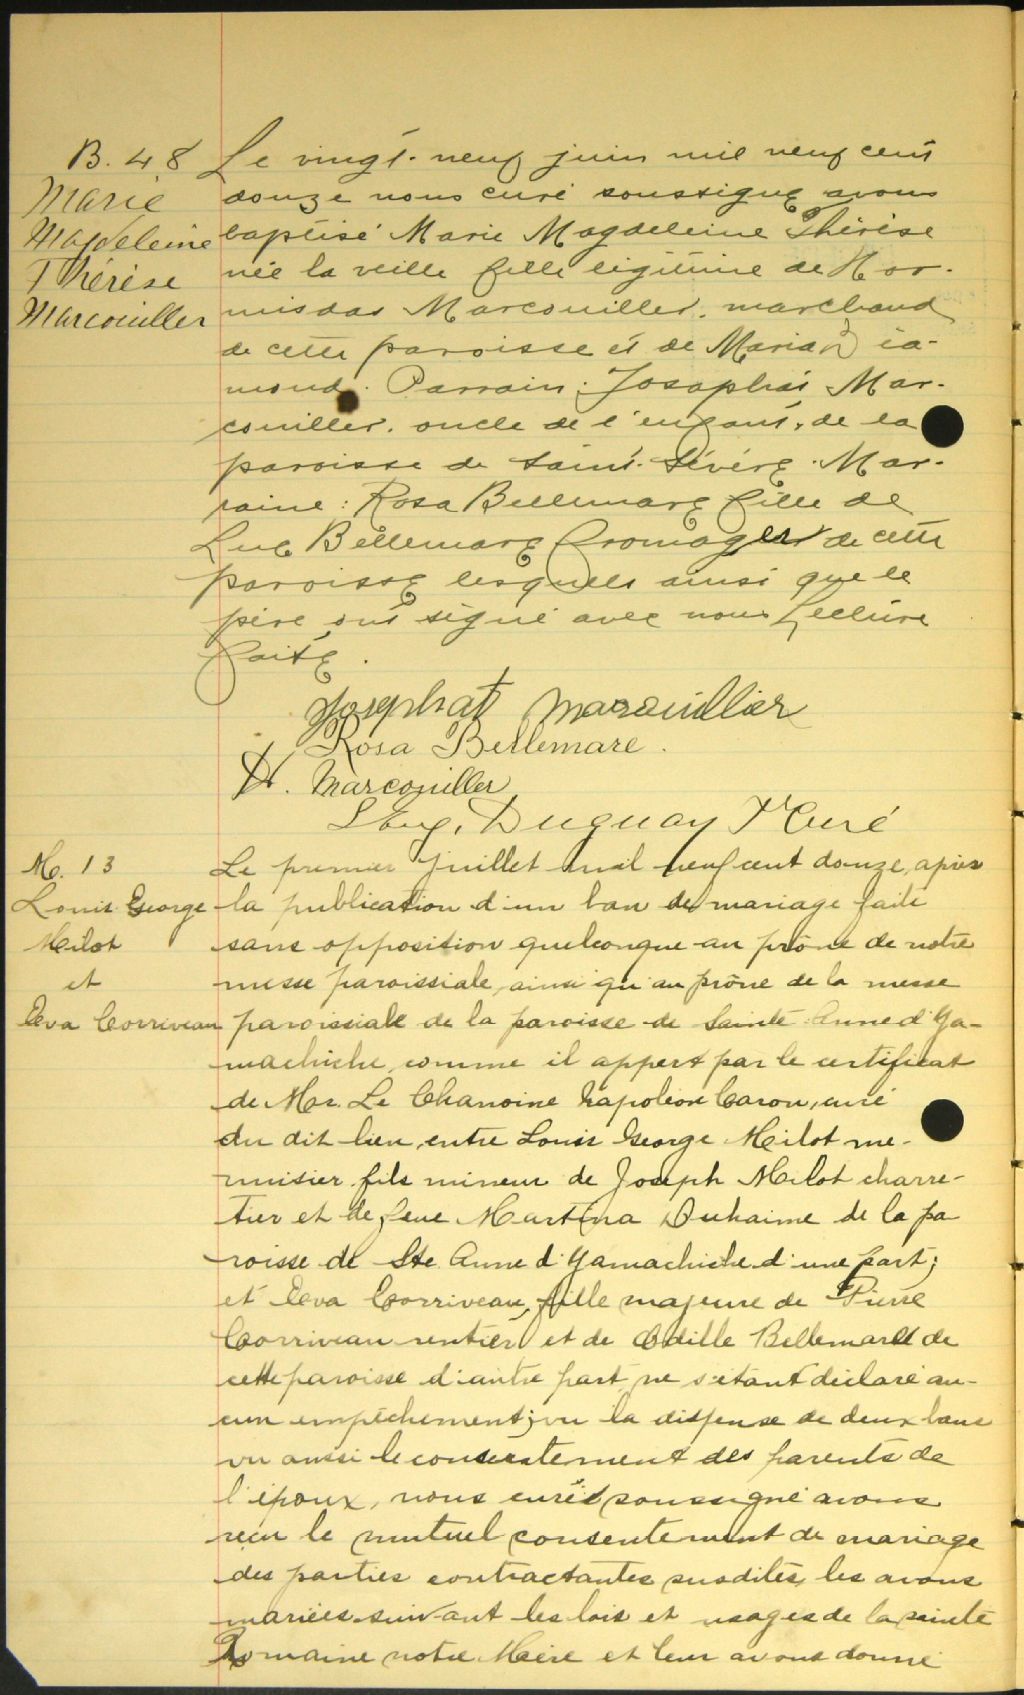 B. 48
Marie
Magdeleine
Thérèse
Marcouiller
Le vingt-neuf juin mil neuf cent
douze nous curé soussigné avons
baptisé Marie Magdeleine Thérèse
née la veille fille légitime de Hor-
misdas Marcouiller, marchand
de cette paroisse et de Maria
mond. Parrain: Josaphat Mar-
couiller, oncle de l'enfant, de la
paroisse de Saint-Sévère. Mar-
raine: Rosa Bellemare fille de
Luc Bellemare fromager de cette
paroisse lesquels ainsi que le
père ont signé avec nous Lecture
faite.
Josephat Marcouiller
Rosa Bellemare.
H. Marcouiller
Duguay Ptre Curé
M. 13
Louis George
Milot
et
Eva Corriveau
Le premier juillet mil neuf cent douze, après
la publication d'un ban de mariage faite
sans opposition quelconque au prône de notre
messe paroissiale, ainsi qu'au prône de la messe
paroissiale de la paroisse de Sainte Anne d'Ya-
machiche, comme il appert par le certificat
de Mr. Le Chanoine Napoléon Caron, curé
du dit lieu, entre Louis George Milot me-
nuisier fils mineur de Joseph Milot charre-
tier et de feue Martina Duhaime de la pa
roisse de Ste Anne d'Yamachiche d'une part;
et Eva Corriveau, fille majeure de Pierre
Corriveau rentier et de Odille Bellemare de
cette paroisse d'autre part, ne s'étant déclaré au-
cun empêchement; vu la dispense de deux bans
vu aussi le consentement des parents de
l'époux, nous curé soussigné avons
reçu le mutuel consentement de mariage
des parties contractantes susdites, les avons
mariées suivant les lois et usages de la sainte
Romaine notre Mère et leur avons donné